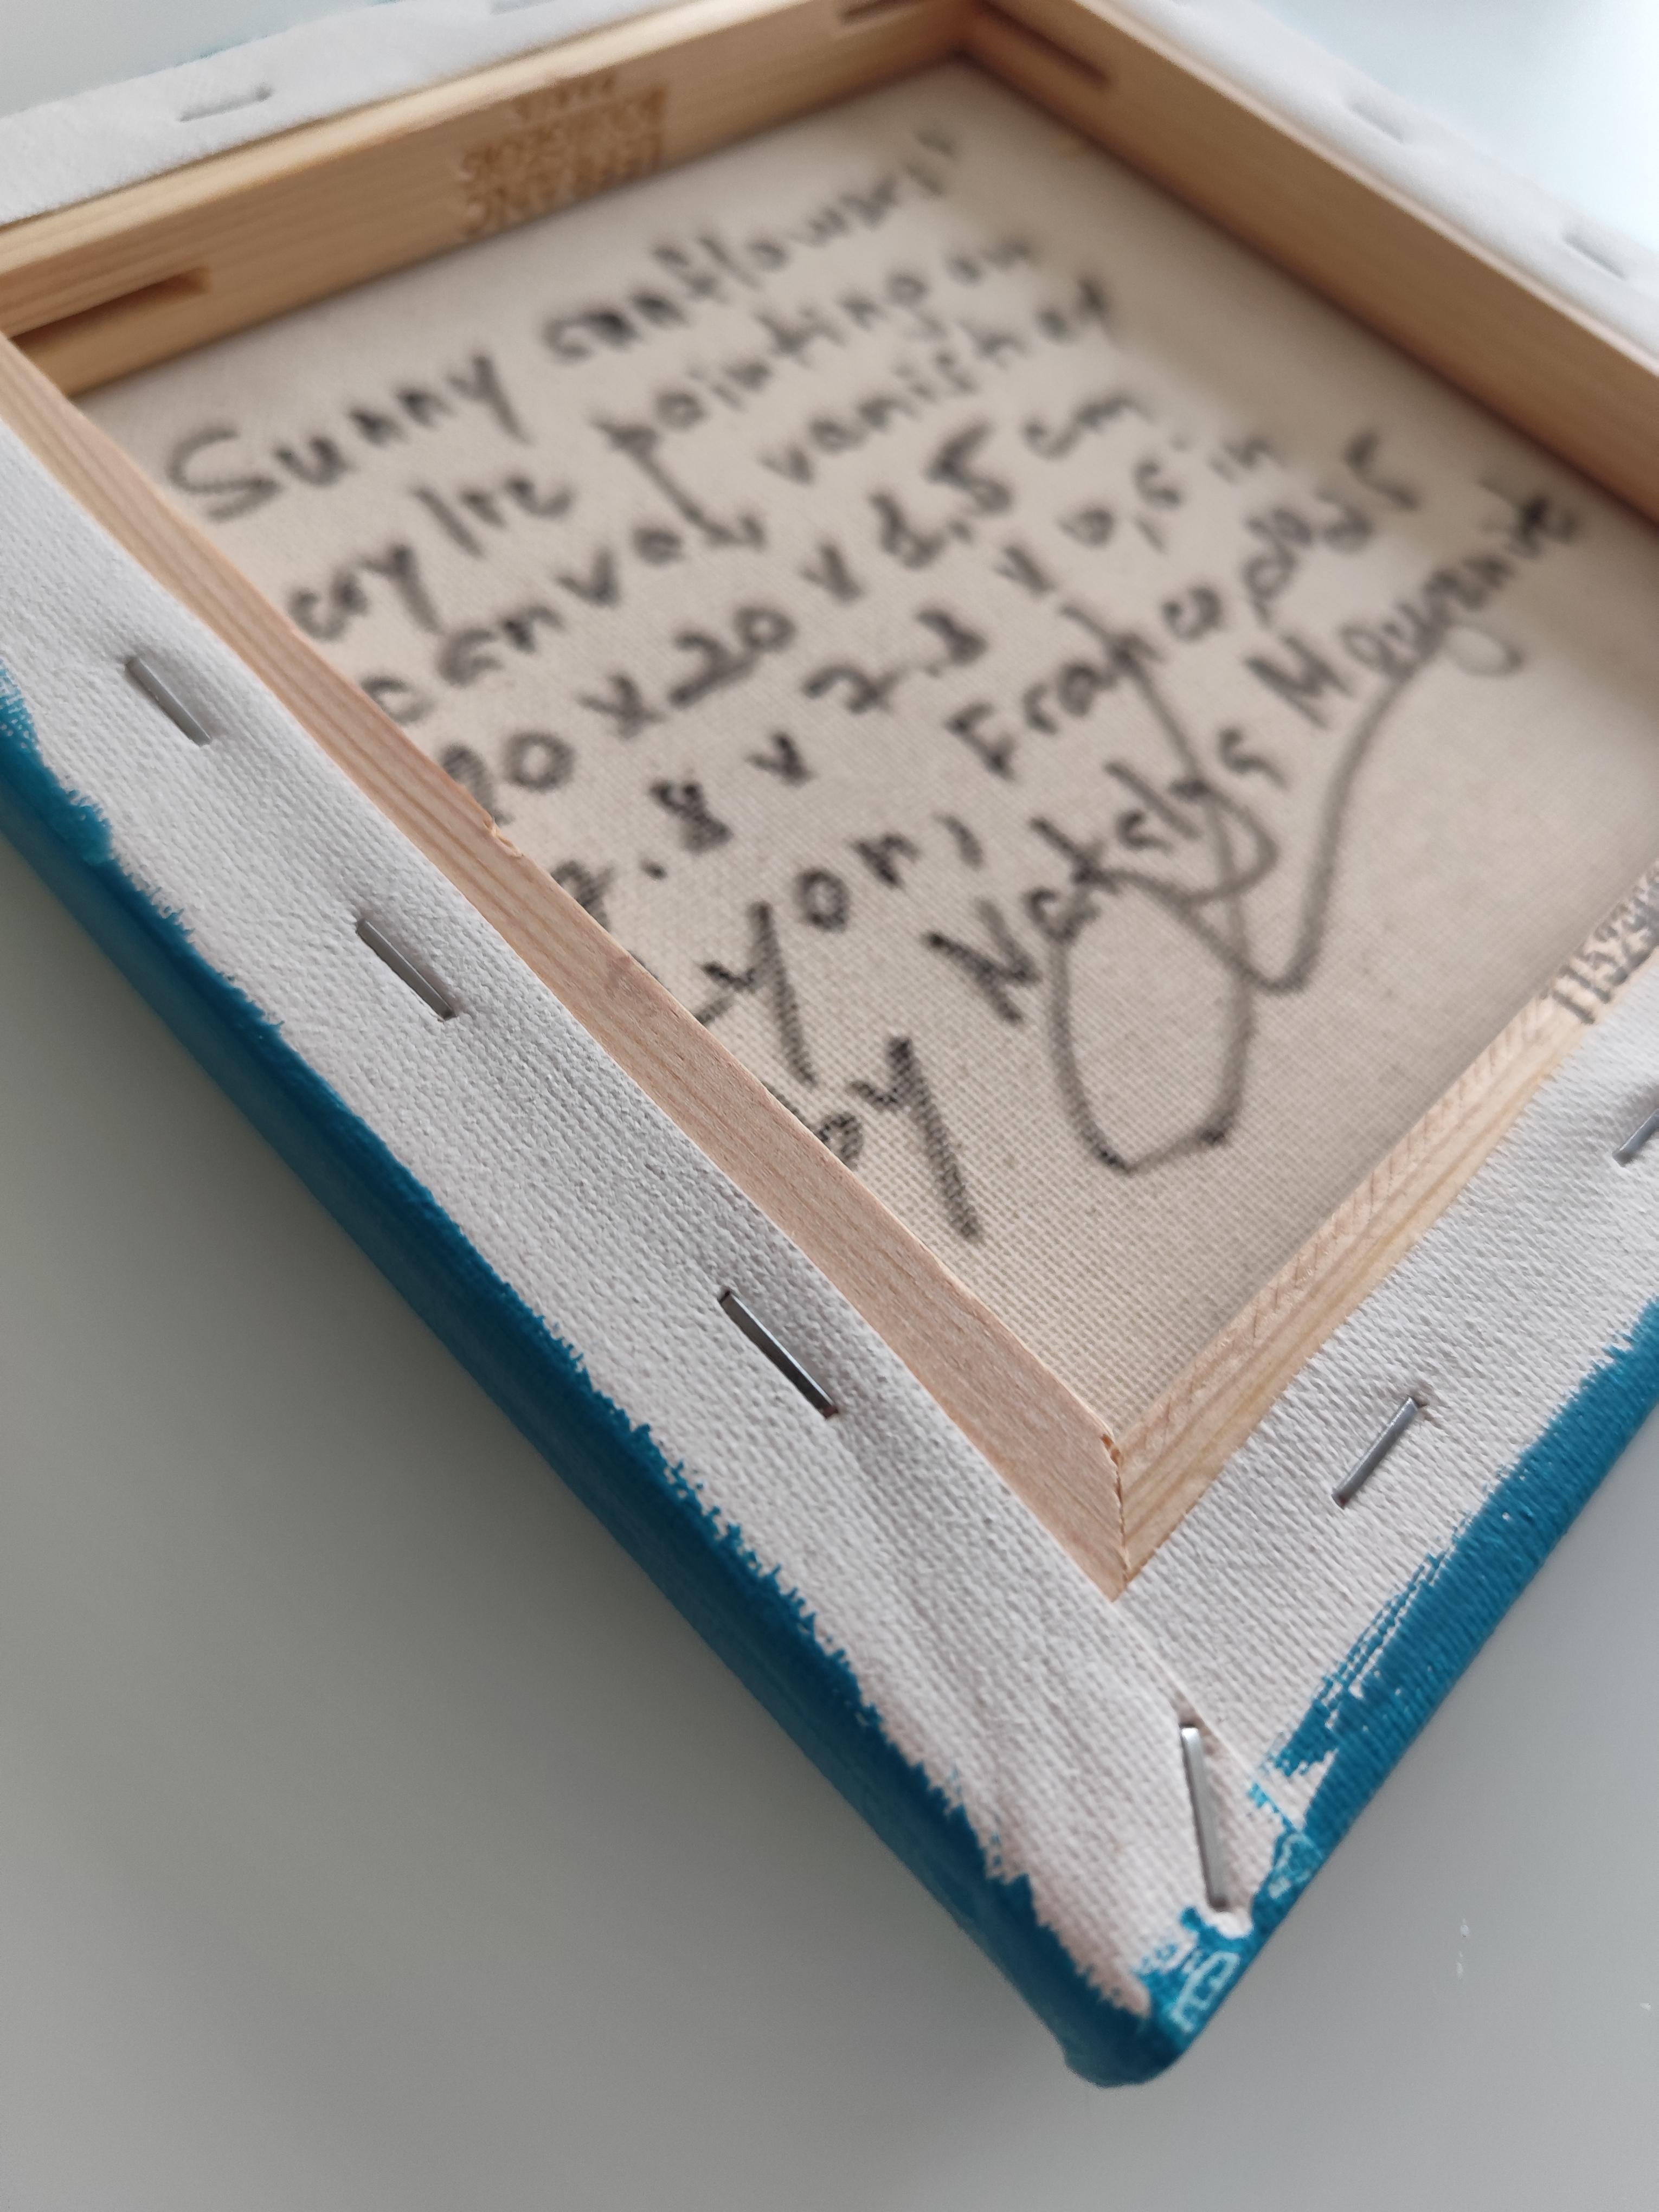 Sunny conflowers"
crylic painting on
canvas, vanished
20 x 20 x 1,5 cm
7.8 x 7.8 x 0,5 in
Lyon, France, 2025
by Natalya Mougenot
11529